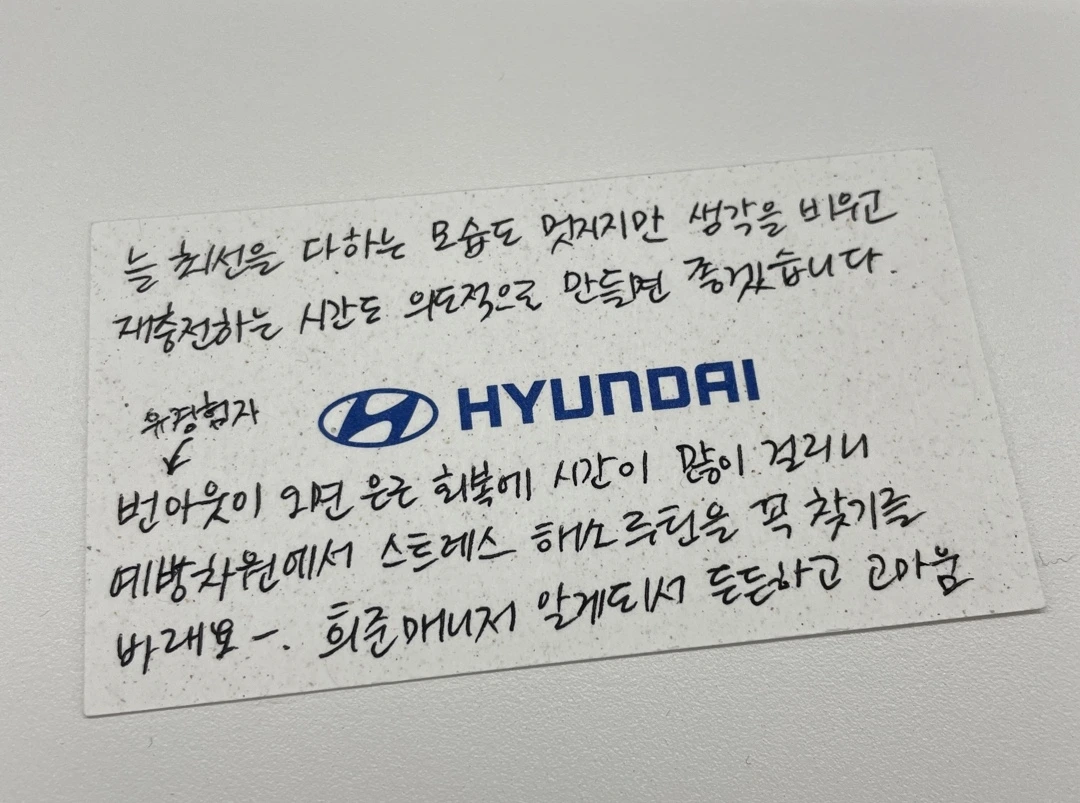 늘 최선을 다하는 모습도 멋지지만 생각을 비우고
재충전하는 시간도 의도적으로 만들면 좋겠습니다.
HYUNDAI
유경험자
번아웃이 오면 은근 회복에 시간이 많이 걸리니
예방차원에서 스트레스 해소 루틴을 꼭 찾기를
바래요-. 희준매니저 알게되서 든든하고 고마움